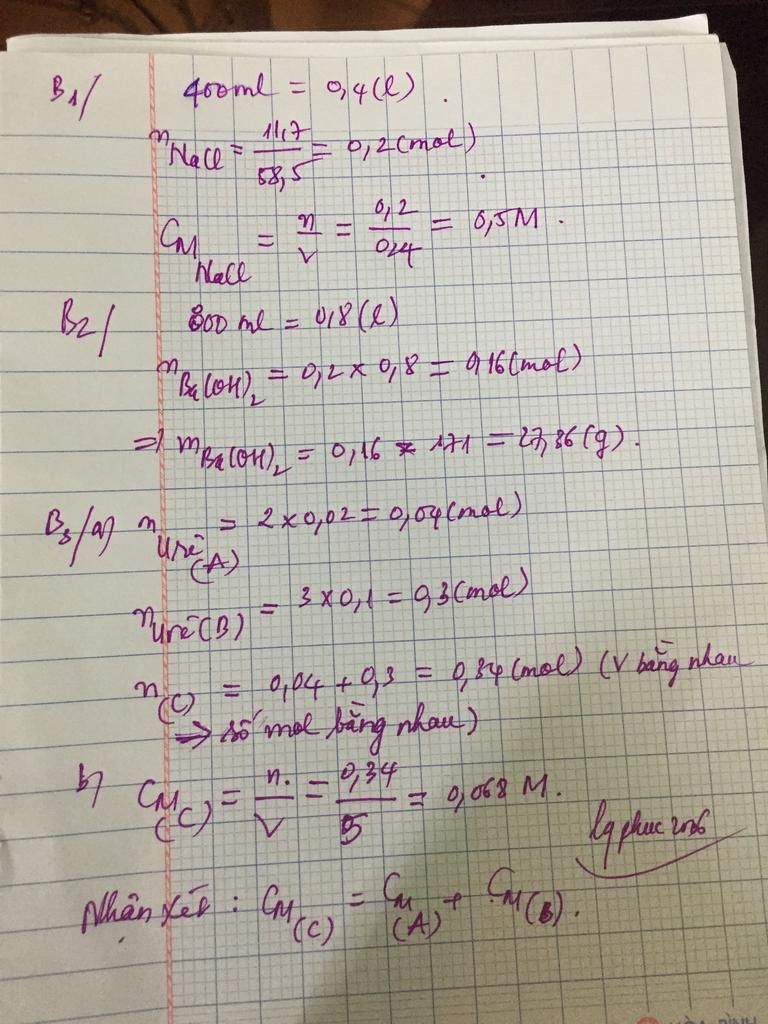 B1/ 400ml = 0,4(l).
nNaCl = 11,7/58,5 = 0,2(mol)
CM NaCl = n/V = 0,2/0,4 = 0,5M.
B2/ 800ml = 0,8(l)
nBa(OH)2 = 0,2 x 0,8 = 0,16(mol)
=> mBa(OH)2 = 0,16 x 171 = 27,36(g).
B3/a) nurê(A) = 2 x 0,02 = 0,04(mol)
nurê(B) = 3 x 0,1 = 0,3(mol)
n(C) = 0,04 + 0,3 = 0,34(mol) (V bằng nhau
=> số mol bằng nhau)
b) CM(C) = n/V = 0,34/5 = 0,068 M.
Nhận xét: CM(C) = CM(A) + CM(B).